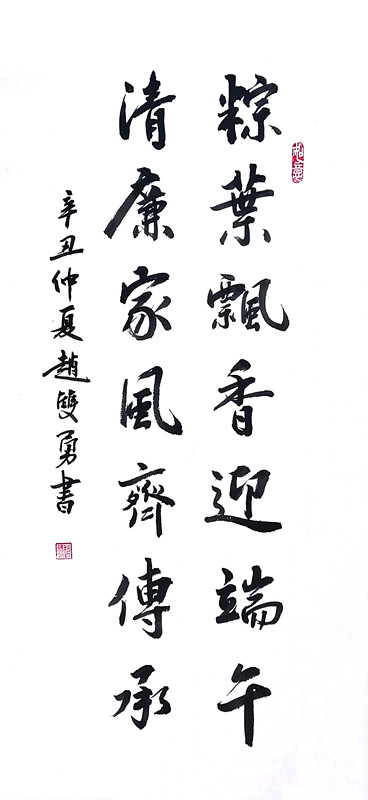 粽葉飄香迎端午
清廉家風齊傳承
辛丑仲夏趙雙勇書